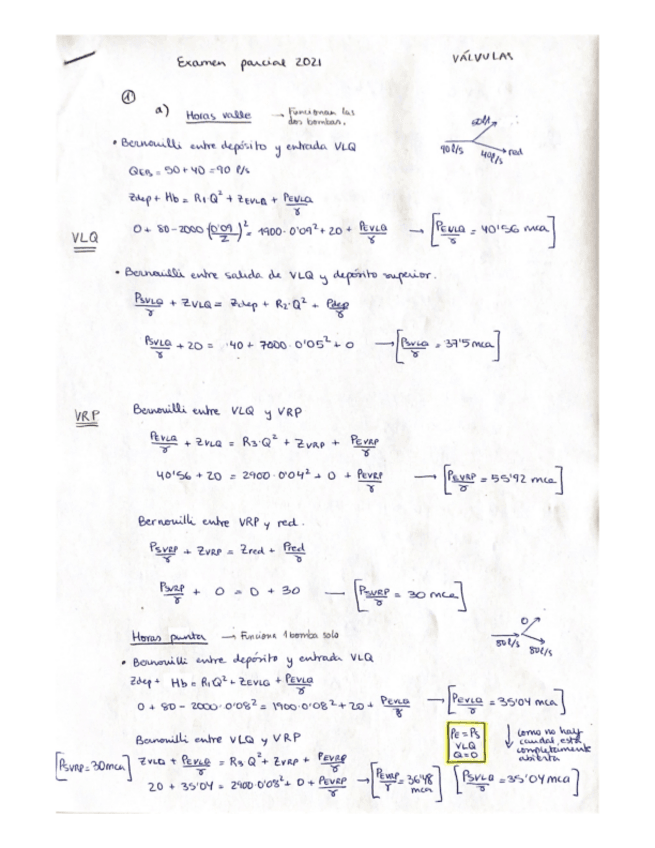 Examen parcial 2021
VÁLVULAS
①
a) Horas valle → Funcionan las dos bombas.
50 l/s
90 l/s 40 l/s red
• Bernouilli entre depósito y entrada VLQ
QEB = 50 + 40 = 90 l/s
Zdep + Hb = R1Q² + ZEVLQ + PEVLQ/γ
0 + 80 - 2000 (0'09/2)² = 1900·0'09² + 20 + PEVLQ/γ → [PEVLQ/γ = 40'56 mca]
VLQ
• Bernouilli entre salida de VLQ y depósito superior.
PSVLQ/γ + ZVLQ = Zdep + R2·Q² + Pdep/γ
PSVLQ/γ + 20 = 40 + 7000·0'05² + 0 → [PSVLQ/γ = 37'5 mca]
VRP
Bernouilli entre VLQ y VRP
PEVLQ/γ + ZVLQ = R3·Q² + ZVRP + PEVRP/γ
40'56 + 20 = 2900·0'04² + 0 + PEVRP/γ → [PEVRP/γ = 55'92 mca]
Bernouilli entre VRP y red.
PSVRP/γ + ZVRP = Zred + Pred/γ
PSVRP/γ + 0 = 0 + 30 — [PSVRP/γ = 30 mca]
Horas punta → Funciona 1 bomba solo
0
80 l/s 80 l/s
• Bernouilli entre depósito y entrada VLQ
Zdep + Hb = R1Q² + ZEVLQ + PEVLQ/γ
0 + 80 - 2000·0'08² = 1900·0'08² + 20 + PEVLQ/γ → [PEVLQ/γ = 35'04 mca]
Bernouilli entre VLQ y VRP
Pe = Ps
VLQ
Q = 0
↓ como no hay
caudal, está
completamente
abierta
[PSVRP = 30 mca] ZVLQ + PEVLQ/γ = R3 Q² + ZVRP + PEVRP/γ
20 + 35'04 = 2900·0'08² + 0 + PEVRP/γ → [PEVRP/γ = 36'48 mca] [PSVLQ/γ = 35'04 mca]